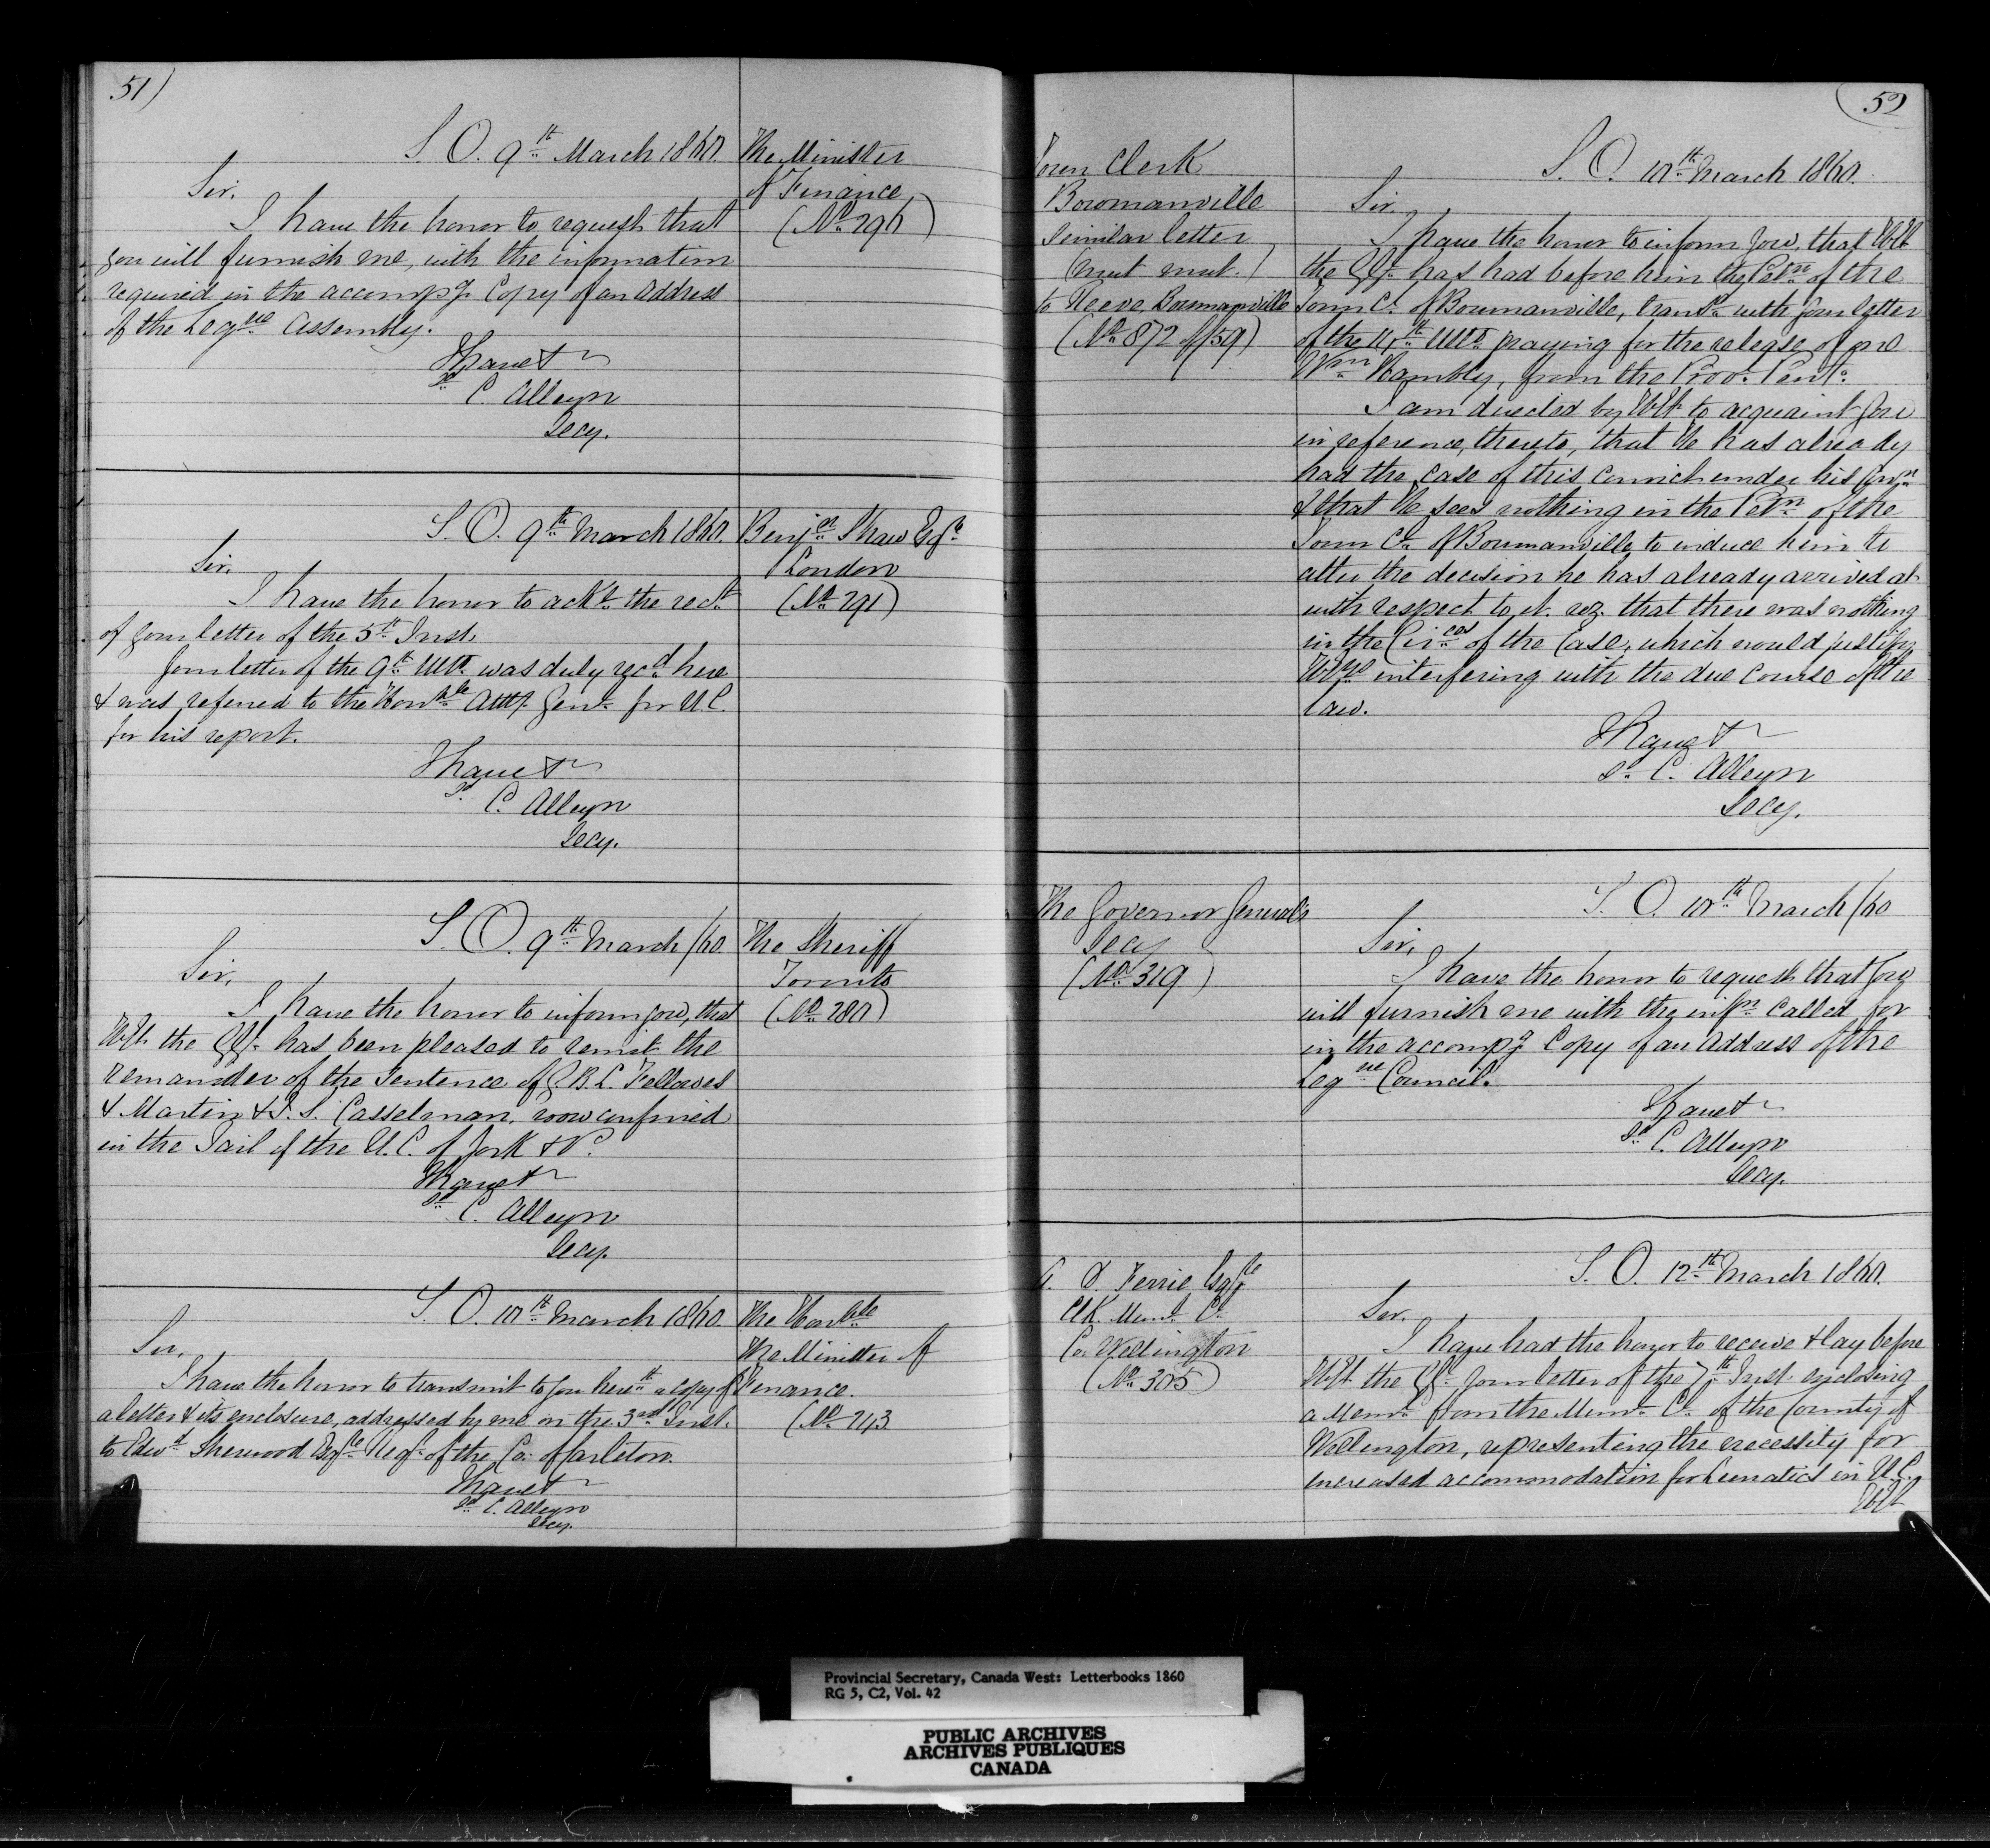 51)
S. O. 9th March 1860.
The Minister
of Finance
(No 296)
Sir,
I have the honor to request that
you will furnish me, with the information
required in the accompg Copy of an Address
of the Legve Assembly.
I have &
Sd C. Alleyn
Secy.
S. O. 9th March 1860.
Benjn Shaw Esqre
London
(No 291)
Sir,
I have the honor to ackn. the rect
of your letter of the 5th Inst.
Your letter of the 9th Ulto was duly recd here
& was referred to the Honble Atty Genl for U.C.
for his report.
I have &
Sd C. Alleyn
Secy.
S. O. 9th March /60.
The Sheriff
Toronto
(No 280)
Sir,
I have the honor to inform you, that
HE the GG. has been pleased to remit the
remainder of the Sentence of G B L Fellowes
& Martin & J. S. Casselman, now confined
in the Jail of the U.C. of York & P.
I have &
Sd C. Alleyn
Secy.
S. O. 10th March 1860.
The Honble
The Minister of
Finance.
(No 243
Sir,
I have the honor to transmit to you herewth a copy of
a letter & its enclosure, addressed by me on the 3rd Inst.
to Edwd Sherwood Esqre Regr of the Co. of Carleton.
I have &
Sd C. Alleyn
Secy.
52
Town Clerk
Bowmanville
Similar letter
(mut mut.)
to Reeve, Bowmanville
(No 872 of /59)
S. O. 10th March 1860.
Sir,
I have the honor to inform you, that HE
the GG. has had before him the Petn of the
Town Cl. of Bowmanville, transd with your letter
of the Ulto praying for the release of one
Wm Hambly, from the Prov. Peny.
I am directed by HE to acquaint you
in reference, thereto, that He has already
had the case of this convict under his Consn
& that He sees nothing in the Petn of the
Town Cl. of Bowmanville to induce him to
alter the decision he has already arrived at
with respect to it. viz. that there was nothing
in the Circes of the Case, which would justify
interfering with the due course of the
law.
I have &
Sd C. Alleyn
Secy.
The Governor General's
Secy
(No 319)
S. O. 10th March /60
Sir,
I have the honor to request that you
will furnish me with the infn called for
in the accompg Copy of an Address of the
Legve Council.
I have &
Sd C. Alleyn
Secy.
A. D. Ferrie Esqre
Clk. Munl Cl.
Co. Wellington
(No 305)
S. O. 12th March 1860.
Sir,
I have had the honor to receive & lay before
HE the GG. your letter of the 7th Inst. enclosing
a Meml from the Munl Cl. of the County of
Wellington, representing the necessity for
increased accommodation for Lunatics in U.C.
HE
Provincial Secretary, Canada West: Letterbooks 1860
RG 5, C2, Vol. 42
PUBLIC ARCHIVES
ARCHIVES PUBLIQUES
CANADA